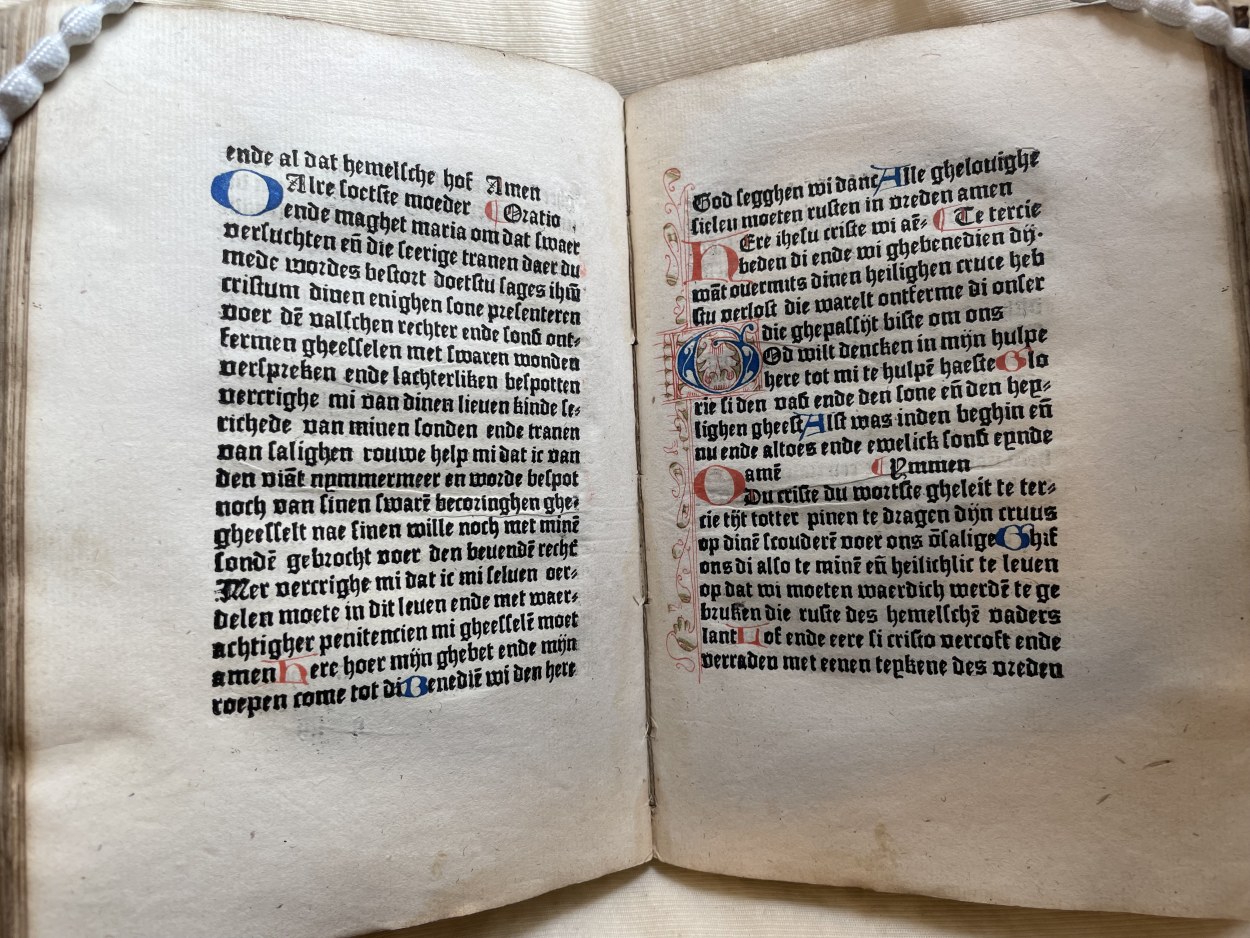 ende al dat hemelſche hof Amen
O Alre ſoetſte moeder ¶ Oratio
ende maghet maria om dat ſwaer
verſuchten en̄ die ſeerige tranen daer du
mede wordes beſtort doetſtu ſages ihūʒ
criſtum dinen enighen ſone preſenteren
voer dē valſchen rechter ende ſond̄ ont⸗
fermen gheeſſelen met ſwaren wonden
verſpreken ende lachterliken beſpotten
vercrighe mi van dinen lieuen kinde ſe⸗
richede van minen ſonden ende tranen
van ſalighen rouwe help mi dat ic van
den viāt nymmermeer en worde beſpot
noch van ſinen ſwarē becoringhen ghe⸗
gheeſſelt nae ſinen wille noch met minē
ſondē gebrocht voer den beuendē recht̄
Mer vercrighe mi dat ic mi ſeluen oer⸗
delen moete in dit leuen ende met waer⸗
achtigher penitencien mi gheeſſelē moet
amen Here hoer mijn ghebet ende mijn
roepen come tot di Benediē wi den here
God ſegghen wi danc Alle ghelouighe
ſielen moeten ruſten in vreden amen
HEre iheſu criſte wi ae᷒⸗ ¶ Te tercie
beden di ende wi ghebenedien dij.
wāt ouermits dinen heilighen cruce heb
ſtu verloſt die warelt ontferme di onſer
die ghepaſſijt biſte om ons
GOd wilt dencken in mijn hulpe
here tot mi te hulpē haeſte Glo
rie ſi den vad̄ ende den ſone en̄ den hey⸗
lighen gheeſt Alſt was inden beghin en̄
nu ende altoes ende ewelick ſond̄ eynde
amē ¶ Ymmen
O Du criſte du wortſte gheleit te ter⸗
cie tijt totter pinen te dragen dijn cruus
op dinē ſcouderē voer ons ōſalige Ghif
ons di alſo te minē en̄ heilichlic te leuen
op dat wi moeten waerdich werdē te ge
bruken die ruſte des hemelſchē vaders
lant Lof ende eere ſi criſto vercoft ende
verraden met eenen teykene des vreden